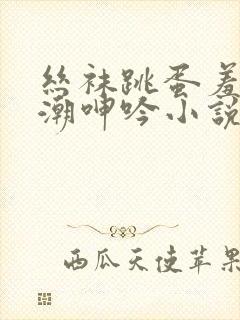 絲袜跳蛋羞
潮呻吟小説
西瓜天使苹果